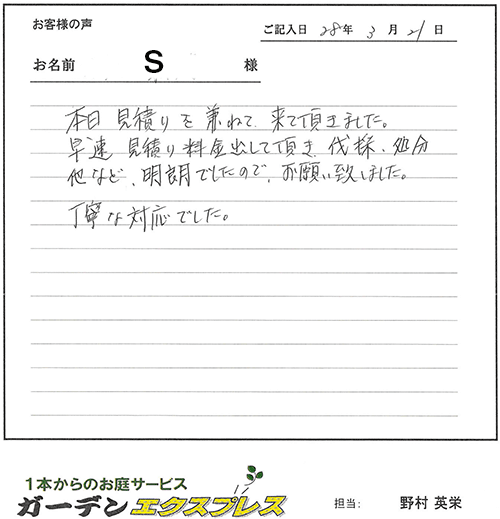 お客様の声
ご記入日 28年 3月 21日
お名前 S 様
本日 見積りを兼ねて、来て頂きました。
早速 見積り料金出して頂き、伐採、処分
他など、明朗でしたので、お願い致しました。
丁寧な対応でした。
1本からのお庭サービス
ガーデンエクスプレス
担当: 野村 英栄